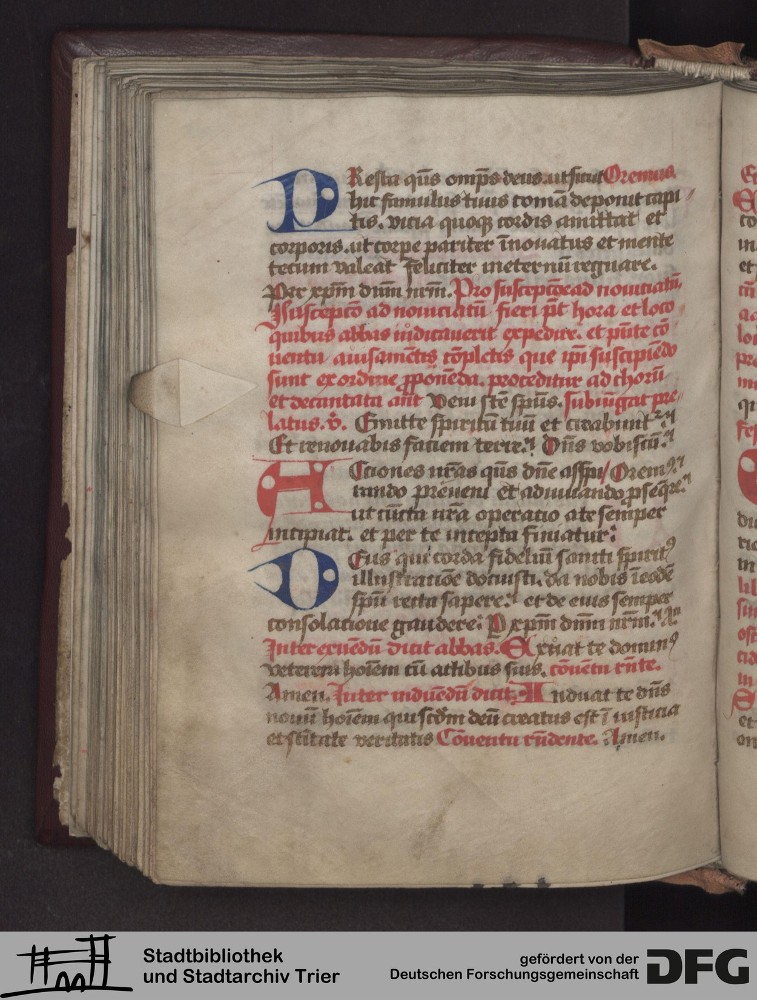 PResta q̄s om̄ps deus. ut sicut Oremus.
hic famulus tuus comā deponit capi
tis. vicia quoq̨ cordis amittat et
corporis. ut corpe pariter īnouatus et mente
tecum valeat feliciter in eternū regnare.
Per xp̄m dn̄m nr̄m. Pro susceptōe ad nouiciatū,
Susceptō ad nouiciatū fieri pt̄ hora et loco
quibus abbas iudicauerit expedire. et pn̄te cō
uentu
cōpletis que ip̄i suscipiēdo
sunt ex ordine ꝓponēda. proceditur ad chorū
et decantata ant̄ Veni scē spūs. subiūgat pre
latus. v̄. Emitte spiritū tuū et creabunt᷑
Et renouabis faciem terre. Dn̄s vobiscū.
ACciones nr̄as q̄s dn̄e asspi/ Orem9
rando preueni et adiuuando ꝓseq̄re.
ut cūcta nr̄a operatio a te semper
incipiat. et per te incepta finiatur:
DEus qui corda fideliū sancti spirit9
illustratiōe docuisti. da nobis ī eodē
spū recta sapere. et de eius semper
consolatione gaudere. P xp̄m dn̄m nr̄m. Am̄
Inter exuēdū dicit abbas. Exuat te domin9
veterem hoīem cū actibus suis. cōuētu rn̄te.
Amen. Inter induēdū dicit. Induat te dn̄s
nouū hoīem qui scdm̄ deū creatus est ī iusticia
et scītate veritatis Cōuentu rn̄dente. Amen.
Stadtbibliothek
und Stadtarchiv Trier
gefördert von der
Deutschen Forschungsgemeinschaft
DFG